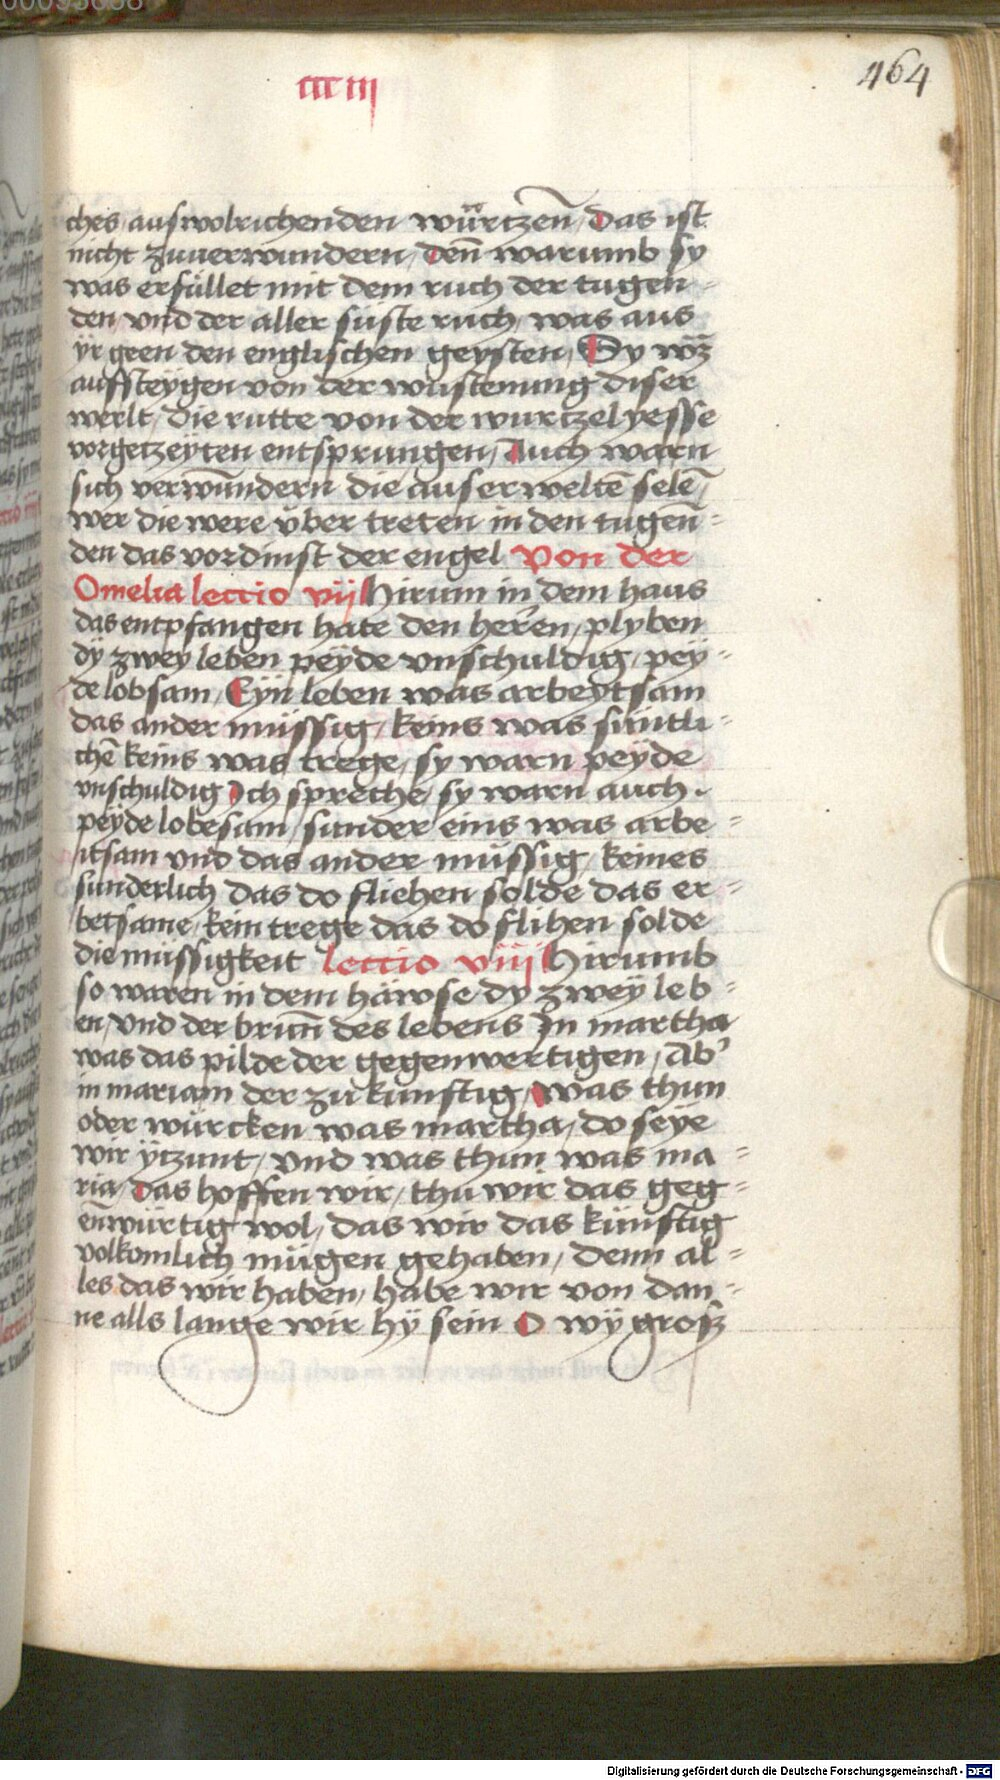 00095688
ccc iij
464
ches auswolrichenden würtzen̄, Das ist
nicht zuuerwundern, den̄ warumb sy
was erfüllet mit dem ruch der tugen-
den, vnd der aller süste ruch, was aus
yr geen den englischen geysten, Sy wz
auffsteygen von der wustenung diser
werlt, die rutte von der wurtzel yesse
vorgetzeyten entsprungen, Auch warn
sich verwūndern die auserwelte᷑ sele᷑,
wer die were vber treten in den tugen̄-
den das vordinst der engel Von der
Omelia lectio vij Hirum in dem haus
das entpfangen hate den herren, plyben
dy zwey leben peyde vnschuldig, pey-
de lobsam, Eyn leben was arbeytsam
das ander müssig, keins was süntli-
chē keins was trege, sy warn peyde
vnschuldig Ich spreche, sy warn auch
peyde lobesam, sunder eins was arbe-
itsam vnd das ander müssig, keines
sunderlich das do fliehen solde das er-
betsame, kein trege das do flihen solde
die müssigkeit lectio viij Hirumb
so waren in dem häwse dy zwey leb-
en, vnd der brun̄ des lebens In martha
was das pilde der gegenwertigen, Ab'
in mariam der zukunftig, Was thun
oder würcken was martha, do seye
wir ytzunt, vnd was thun was ma-
ria, Das hoffen wir, thu wir das geg-
en̄würtig wol, das wir das künftig
volkomlich mügen gehaben, denn al-
les das wir haben, habe wir von dan-
ne alls lange wir hy sein O wy grosz
Digitalisierung gefördert durch die Deutsche Forschungsgemeinschaft - DFG